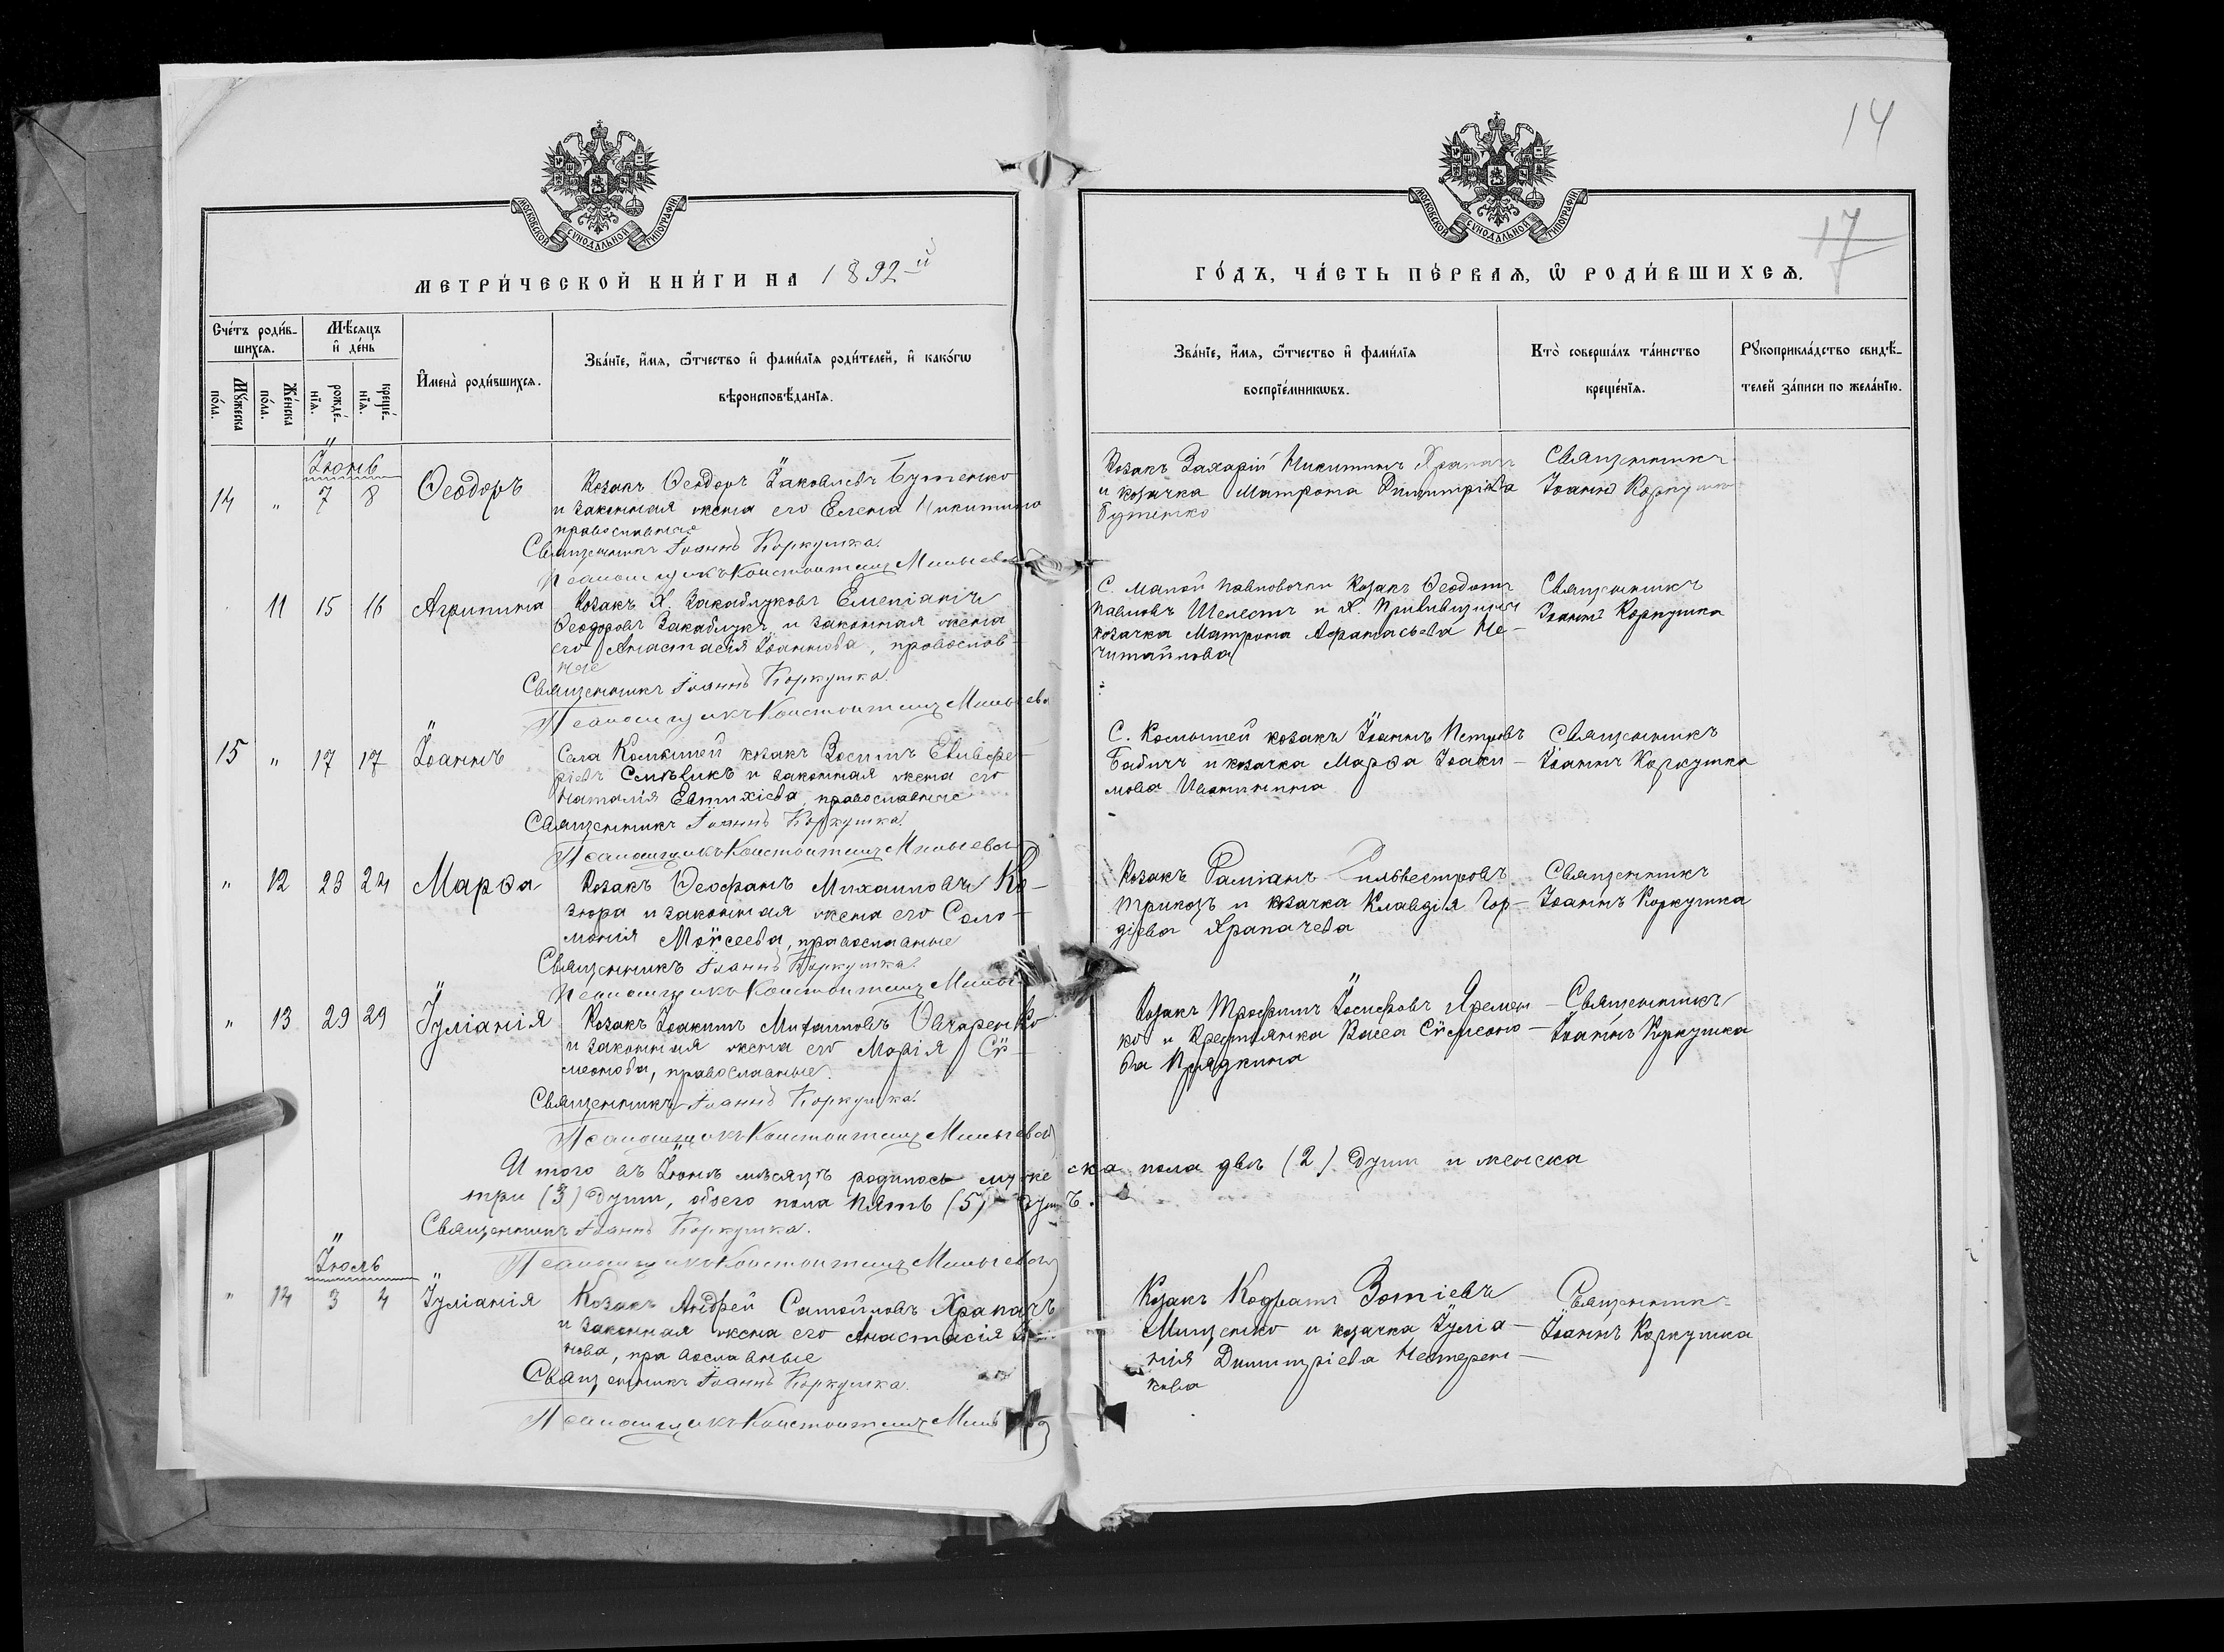 14
17
МОСКОВСКОЙ СѴНОДАЛЬНОЙ ТИПОГРАФІИ
МОСКОВСКОЙ СѴНОДАЛЬНОЙ ТИПОГРАФІИ
МЕТРИ́ЧЕСКОЙ КНИ́ГИ НА 1892-й
ГО́ДЪ, ЧА́СТЬ ПЕ́РВАѦ, Ѿ РОДИ́ВШИХСѦ.
Сче́тъ роди́в-
шихсѧ.
Мѣ́сяцъ
и҆ де́нь
И҆мена̀ роди́вшихсѧ.
Зва́нїе, и҆́мѧ, ѻ҆́тчество и҆ фами́лїѧ роди́телей, и҆ како́гѡ
вѣроисповѣ́данїѧ.
Мꙋ́жеска
по́ла.
Же́нска
по́ла.
рожде́-
нїѧ.
креще́-
нїѧ.
Зва́нїе, и҆́мѧ, ѻ҆́тчество и҆ фами́лїѧ
воспрїе́мникѡвъ.
Кто̀ соверша́лъ та́инство
креще́нїѧ.
Рꙋкоприкла́дство свидѣ́-
телей за́писи по жела́нїю.
Іюнь
14 " 7 8 Ѳеодоръ
Козакъ Ѳеодоръ Іаковлевъ Бутенко
и законная жена его Елена Никитина
православные
Священникъ Іоаннъ Коркушка.
Псаломщикъ Константинъ
Козакъ Захарій Никитинъ Храпачъ
и козачка Матрона Димитріева
Бутенко
Священникъ
Іоаннъ Коркушка
11 15 16 Агрипина
Козакъ Х. Закаблуковъ Емеліанъ
Ѳеодоровъ Закаблукъ и законная жена
его Анастасія Іоаннова, православ-
ные
Священникъ Іоаннъ Коркушка.
Псаломщикъ Константинъ
С. Малой Павловочки козакъ Ѳеодотъ
Павловъ Шелестъ и Х.
козачка Матрона Аѳанасьева Не-
читайлова
Священникъ
Іоаннъ Коркушка
15 " 17 17 Іоаннъ
Села Комышей козакъ Зосимъ Елевфе-
ріевъ и законная жена его
Наталія Евтихіева, православные
Священникъ Іоаннъ Коркушка.
Псаломщикъ Константинъ
С. Комышей козакъ Іоаннъ Петровъ
Бабичъ и козачка Марѳа Іоаки-
мова
Священникъ
Іоаннъ Коркушка
" 12 23 24 Марѳа
Козакъ Ѳеофанъ Михаиловъ Ко-
зюра и законная жена его Соло-
монія Моѵсеева, православные
Священникъ Іоаннъ Коркушка.
Псаломщикъ Константинъ
Козакъ Даміанъ Сильвестровъ
Трикозъ и козачка Клавдія Гор-
діева Храпачева
Священникъ
Іоаннъ Коркушка
" 13 29 29 Іуліанія
Козакъ Іоакимъ Михаиловъ Овчаренко
и законная жена его Марія Сѵ-
меонова, православные.
Священникъ Іоаннъ Коркушка.
Псаломщикъ Константинъ
Козакъ Трофимъ Іосифовъ Яремен-
ко и крестьянка Васса Сѵмеоно-
ва Прядкина
Священникъ
Іоаннъ Коркушка
Итого въ Іюнѣ мѣсяцѣ родилось мужеска пола двѣ (2) души и женска
три (3) души, обоего пола пять (5) душъ.
Священникъ Іоаннъ Коркушка.
Псаломщикъ Константинъ
Іюль
" 14 3 4 Іуліанія
Козакъ Андрей Самойловъ Храпачъ
и законная жена его Анастасія
нова, православные
Священникъ Іоаннъ Коркушка.
Псаломщикъ Константинъ
Козакъ Кодратъ Зотіевъ
Мищенко и козачка Іуліа-
нія Димитріева Нестерен-
кова
Священникъ
Іоаннъ Коркушка